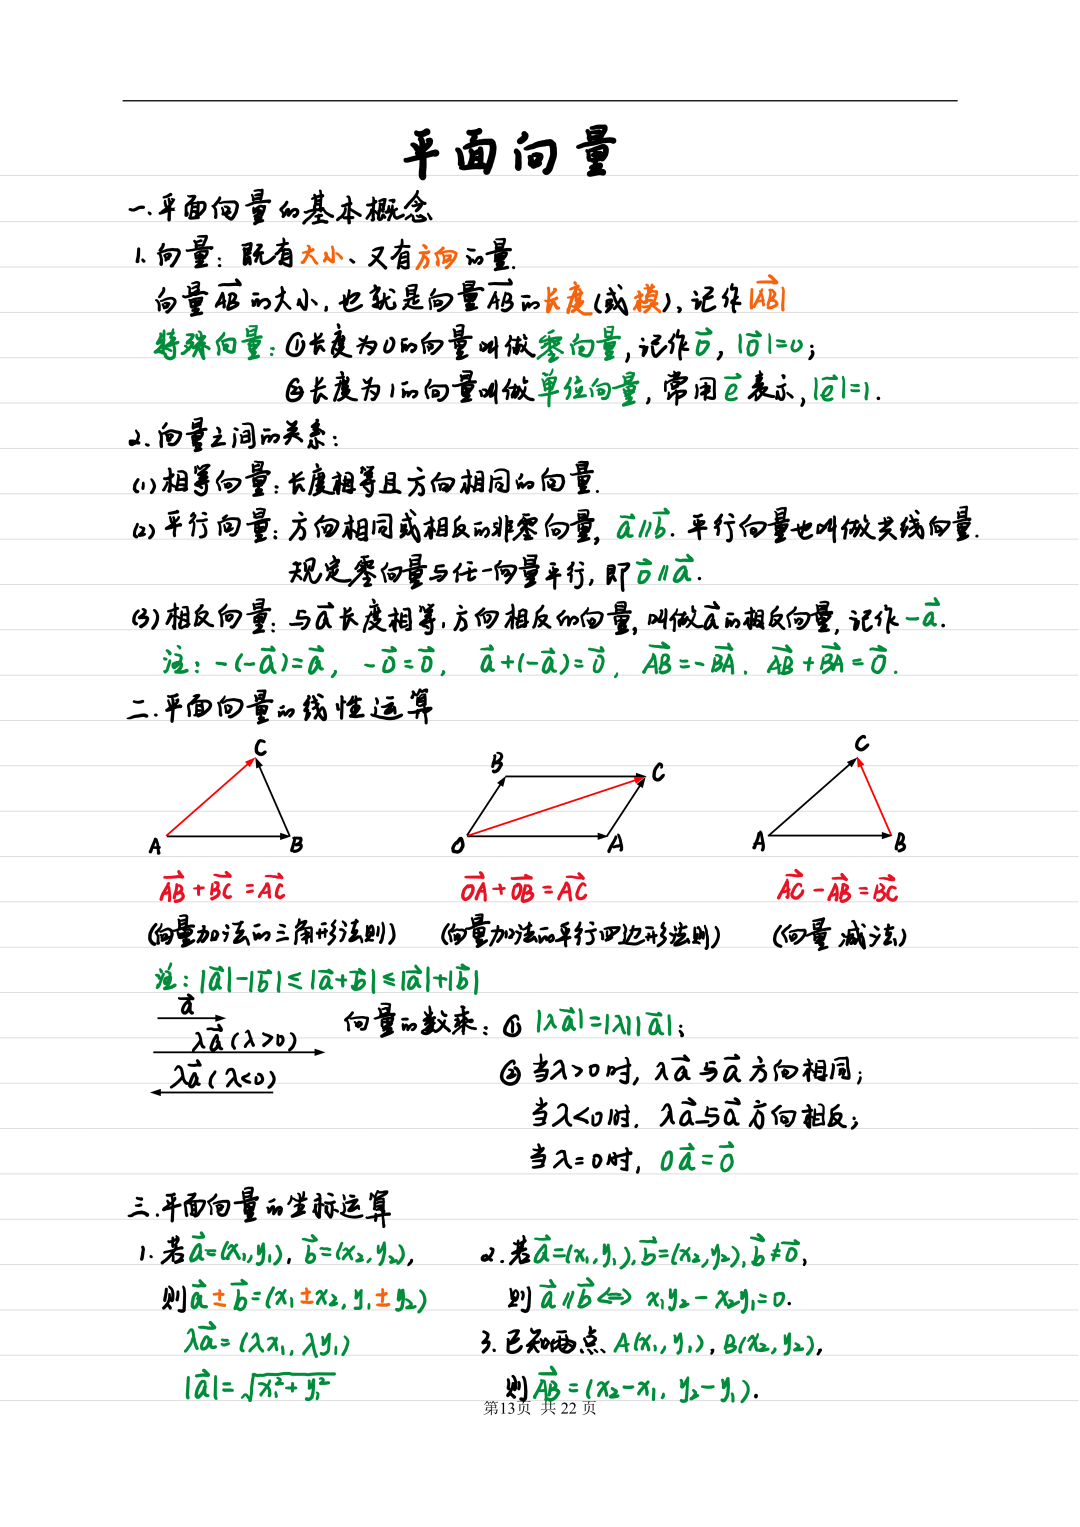 平面向量
一.平面向量的基本概念
1.向量：既有大小、又有方向的量.
向量AB⃗的大小,也就是向量AB⃗的长度(或模),记作|AB⃗|
特殊向量：①长度为0的向量叫做零向量,记作0⃗, |0⃗|=0;
②长度为1的向量叫做单位向量,常用e⃗表示,|e⃗|=1.
2.向量之间的关系：
(1)相等向量：长度相等且方向相同的向量.
(2)平行向量：方向相同或相反的非零向量, a⃗∥b⃗. 平行向量也叫做共线向量.
规定零向量与任一向量平行,即0⃗∥a⃗.
(3)相反向量：与a⃗长度相等,方向相反的向量,叫做a⃗的相反向量,记作-a⃗.
注：-(-a⃗)=a⃗, -0⃗=0⃗, a⃗+(-a⃗)=0⃗, AB⃗=-BA⃗. AB⃗+BA⃗=0⃗.
二.平面向量的线性运算
C
A
B
B
C
O
A
C
A
B
AB⃗+BC⃗=AC⃗
OA⃗+OB⃗=AC⃗
AC⃗-AB⃗=BC⃗
(向量加法的三角形法则)
(向量加法的平行四边形法则)
(向量减法)
注：|a⃗|-|b⃗|≤|a⃗+b⃗|≤|a⃗|+|b⃗|
a⃗
λa⃗(λ>0)
λa⃗(λ<0)
向量的数乘：① |λa⃗|=|λ||a⃗|;
② 当λ>0时, λa⃗与a⃗方向相同;
当λ<0时. λa⃗与a⃗方向相反;
当λ=0时, 0a⃗=0⃗
三.平面向量的坐标运算
1.若a⃗=(x₁,y₁), b⃗=(x₂,y₂),
则a⃗±b⃗=(x₁±x₂, y₁±y₂)
λa⃗=(λx₁, λy₁)
|a⃗|=√(x₁²+y₁²)
2.若a⃗=(x₁,y₁), b⃗=(x₂,y₂), b⃗≠0⃗,
则a⃗∥b⃗⇔x₁y₂-x₂y₁=0.
3.已知两点A(x₁,y₁), B(x₂,y₂),
则AB⃗=(x₂-x₁, y₂-y₁).
第13页 共 22 页